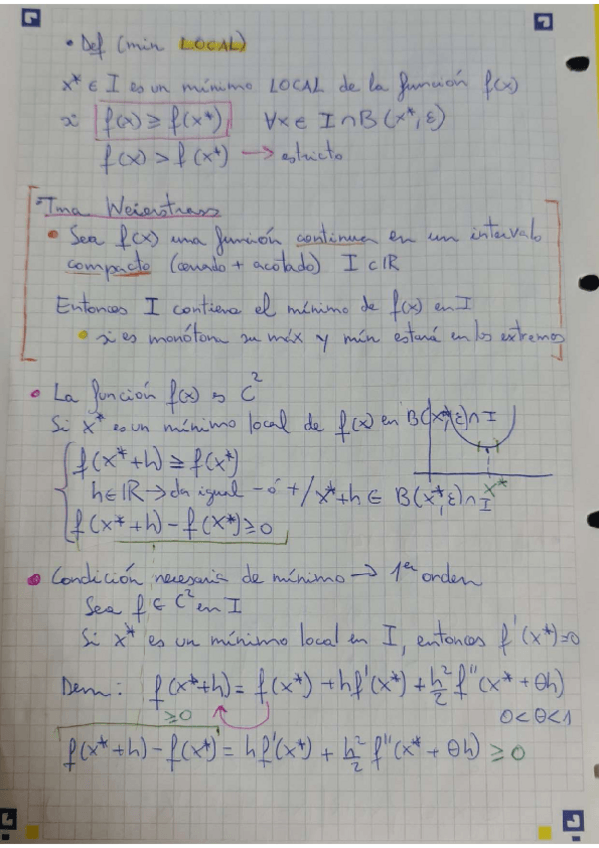 • Def (min LOCAL)
x* ∈ I es un mínimo LOCAL de la función f(x)
si f(x) ≥ f(x*) ∀x ∈ I ∩ B(x*, ε)
f(x) > f(x*) → estricto
• Tma Weierstrass
• Sea f(x) una función continua en un intervalo
compacto (cerrado + acotado) I ⊂ IR
Entonces I contiene el mínimo de f(x) en I
• si es monótona su máx y mín estará en los extremos
• La función f(x) es C²
Si x* es un mínimo local de f(x) en B(x*, ε) ∩ I
f(x* + h) ≥ f(x*)
h ∈ IR → da igual - ó + / x* + h ∈ B(x*, ε) ∩ I
x*
f(x* + h) - f(x*) ≥ 0
• Condición necesaria de mínimo → 1er orden
Sea f ∈ C² en I
Si x* es un mínimo local en I, entonces f'(x*) = 0
Dem: f(x* + h) = f(x*) + hf'(x*) + h²/2 f''(x* + θh)
≥ 0 0 < θ < 1
f(x* + h) - f(x*) = hf'(x*) + h²/2 f''(x* + θh) ≥ 0